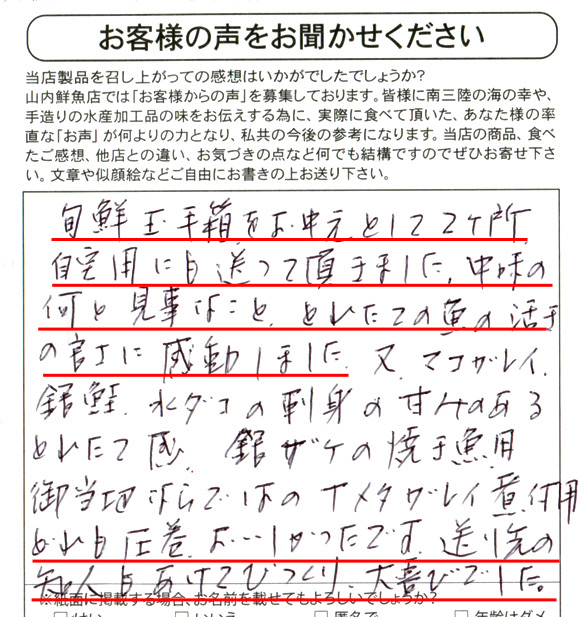 お客様の声をお聞かせください
当店製品を召し上がっての感想はいかがでしたでしょうか?
山内鮮魚店では「お客様からの声」を募集しております。皆様に南三陸の海の幸や、
手造りの水産加工品の味をお伝えする為に、実際に食べて頂いた、あなた様の率
直な「お声」が何よりの力となり、私共の今後の参考になります。当店の商品、食べ
たご感想、他店との違い、お気づきの点など何でも結構ですのでぜひお寄せ下さ
い。文章や似顔絵などご自由にお書きの上お送り下さい。
旬鮮玉手箱をお中元として2ヶ所
自宅用にも送って頂きました。中味の
何と見事なこと、とれたての魚の活き
の良さに感動しました。又、マコガレイ、
銀鮭、水ダコの刺身の甘みのある
とれたて感、銀ザケの焼き魚用
御当地ならではのナメタガレイ煮付用
どれも圧巻、お…いしかったです。送り先の
知人もあけてびっくり、大喜びでした。
※紙面に掲載する場合、お名前を載せてもよろしいでしょうか?
□はい □いいえ □匿名で □年齢はダメ